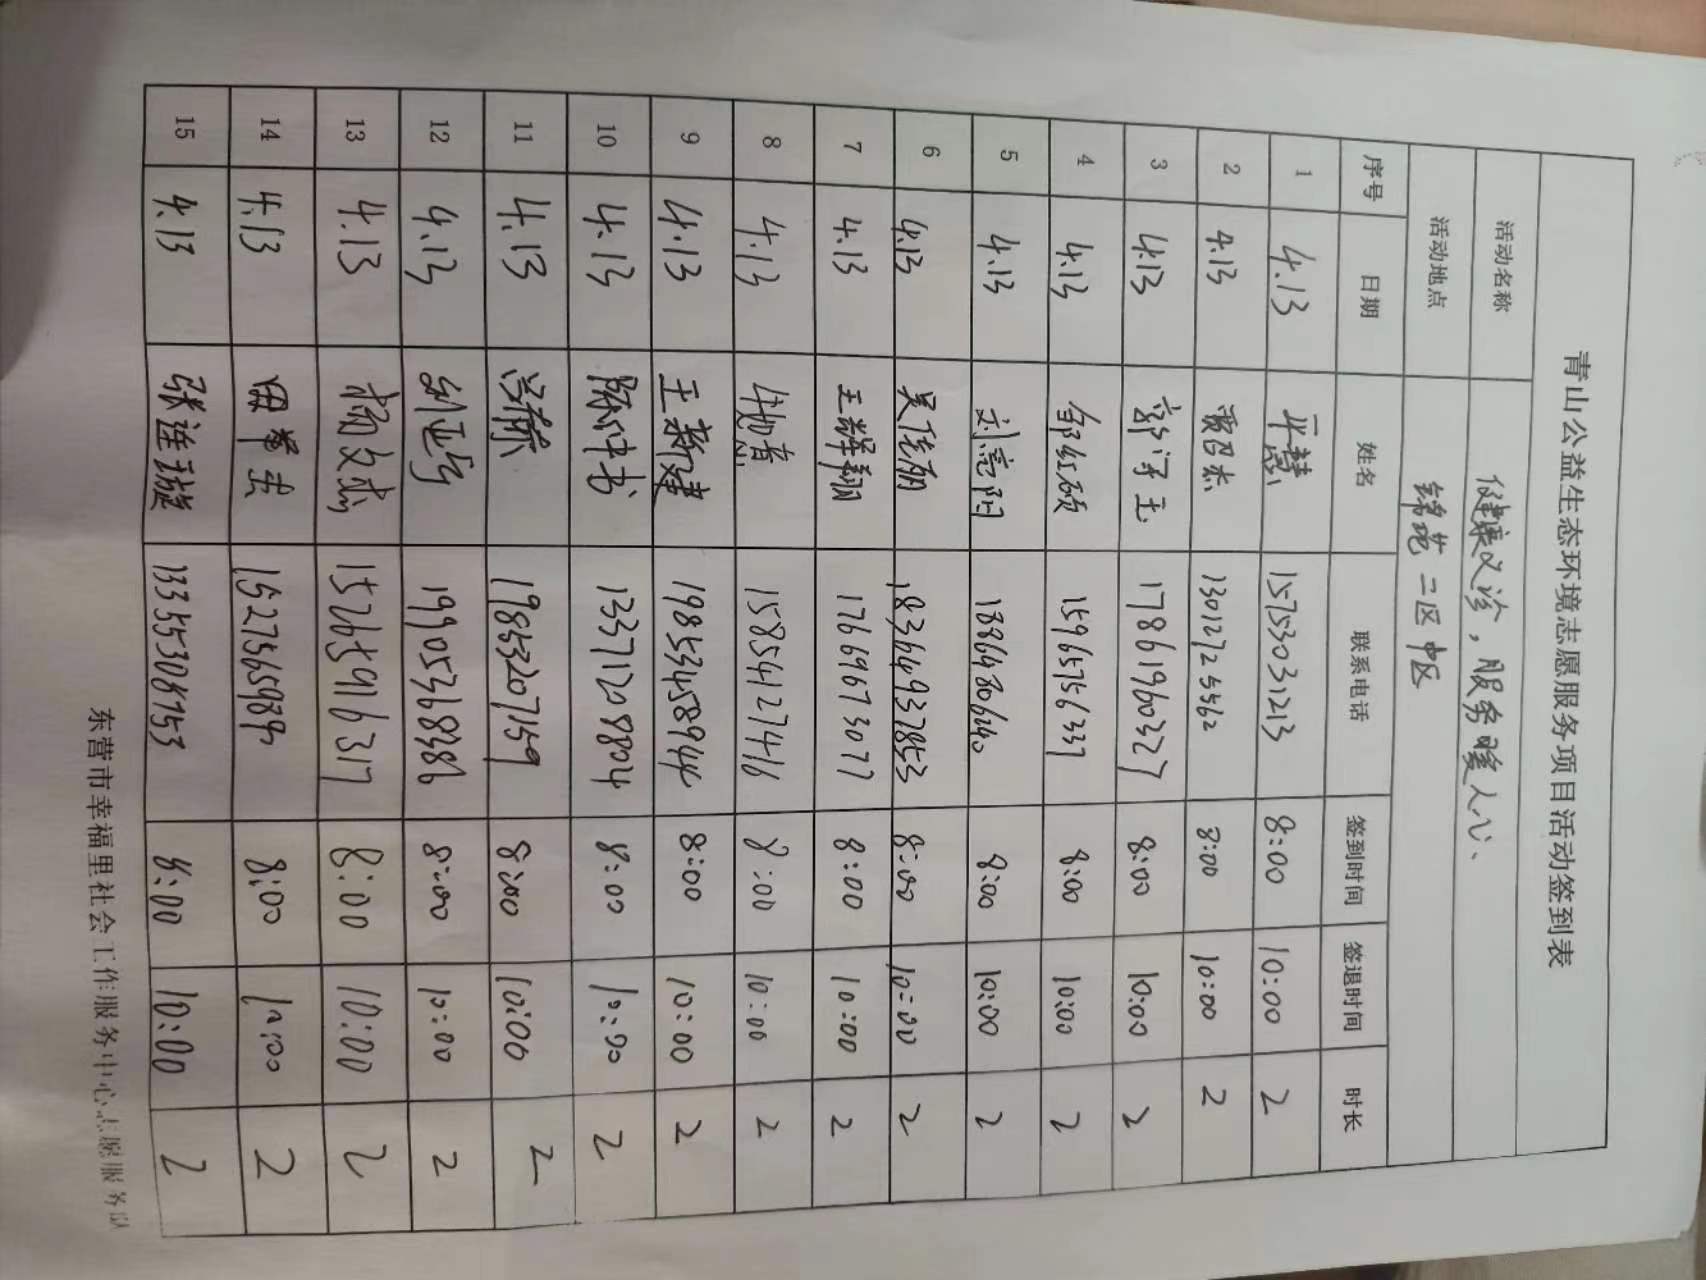 青山公益生态环境志愿服务项目活动签到表
活动名称 健康义诊，服务暖人心、
活动地点 锦苑二区中区
序号 日期 姓名 联系电话 签到时间 签退时间 时长
1 4.13 15753031213 8:00 10:00 2
2 4.13 贾召杰 13012725562 8:00 10:00 2
3 4.13 17861960327 8:00 10:00 2
4 4.13 邹红硕 15965756337 8:00 10:00 2
5 4.13 刘亮阳 18864806640 8:00 10:00 2
6 4.13 吴佳丽 18364937853 8:00 10:00 2
7 4.13 王辉翔 17669673077 8:00 10:00 2
8 4.13 15854127416 8:00 10:00 2
9 4.13 王新建 19853458944 8:00 10:00 2
10 4.13 陈仲书 13371208804 8:00 10:00 2
11 4.13 19853207159 8:00 10:00 2
12 4.13 19905368386 8:00 10:00 2
13 4.13 杨文杰 15265916317 8:00 10:00 2
14 4.13 8:00 10:00 2
15 4.13 张连璇 13355308753 8:00 10:00 2
东营市幸福里社会工作服务中心志愿服务队